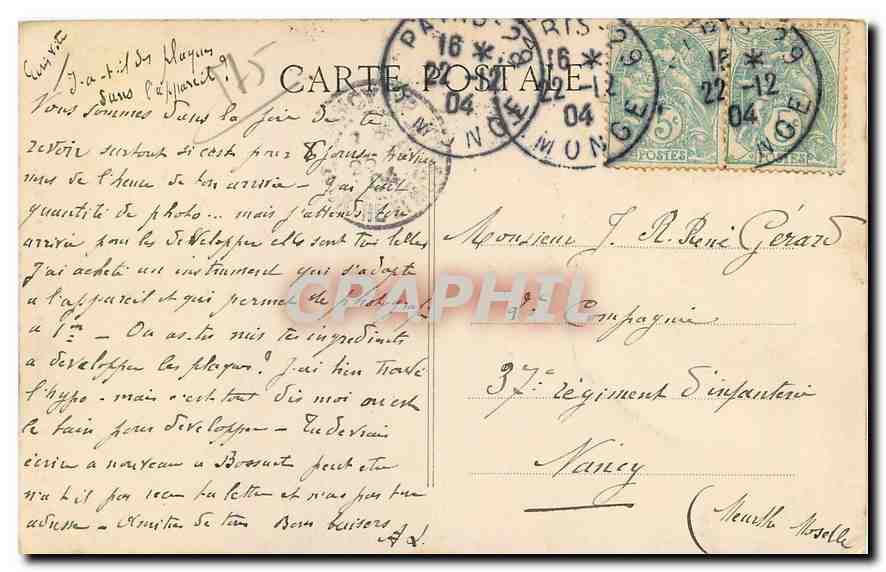 Y-a-t-il des plaques
dans l'appareil?
175
CARTE POSTALE
PARIS
16 *
22 -12
04
MONGE
PARIS - 29
16 *
22 -12
04
MONGE
16 *
22 -12
04
5c
POSTES
Nous sommes dans la joie de te
revoir surtout si c'est pour 8 jours
de l'heure de ton arrivée - J'ai fait
quantité de photo... mais j'attends ton
arrivée pour les développer elles sont très belles
J'ai acheté un instrument qui s'adapte
a l'appareil et qui permet de photographier
a 1m - Ou as-tu mis tes ingrédients
a développer les plaques? J'ai bien trouvé
l'hypo - mais c'est tout dis moi ou est
le bain pour développer - Tu devrais
écrire a nouveau a Bossuet peut etre
n'a t il pas reçu ta lettre et n'a pas ton
adresse - Amitiés de tous Bons baisers
A L.
Monsieur J. R. René Gérard
Compagnie
37e régiment d'infanterie
Nancy
(Meurthe Moselle
CPAPHIL